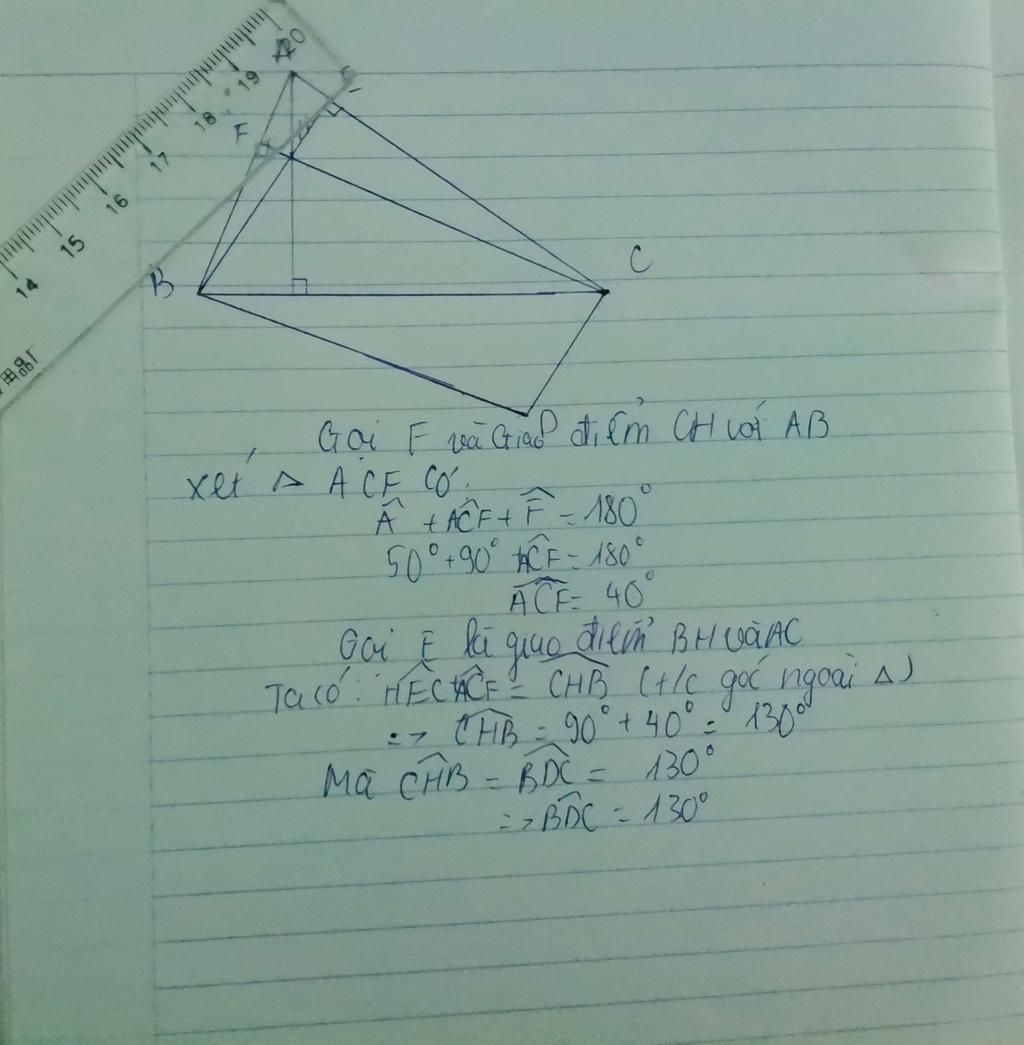 20
19
18
17
16
15
14
用品厂
A
F
H
B
C
Gọi F và Giao điểm CH với AB
xét △ ACF có:
Â + ACF̂ + F̂ = 180°
50° + 90° + ACF̂ = 180°
ACF̂ = 40°
Gọi E là giao điểm BH và AC
Ta có: HEĈ + ACF̂ = CHB̂ (t/c góc ngoài △)
=> CHB̂ = 90° + 40° = 130°
Mà CHB̂ = BDĈ = 130°
=> BDĈ = 130°